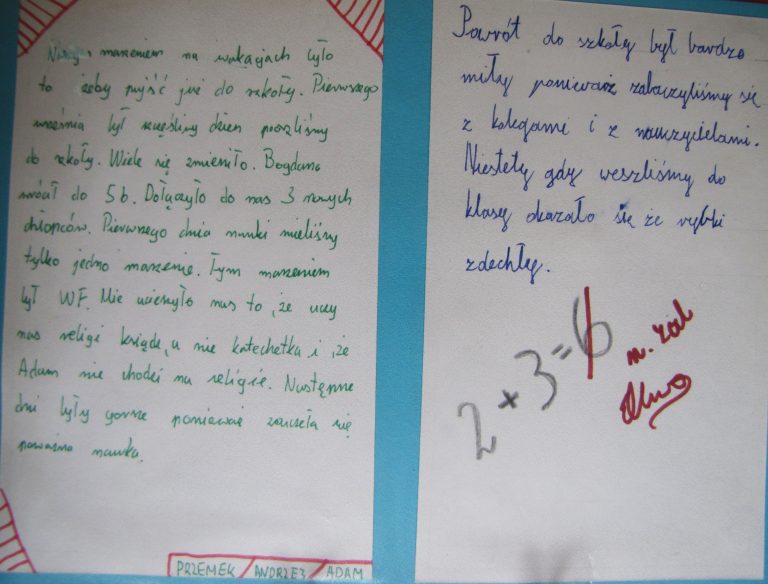 Naszym marzeniem na wakacjach było
to żeby pujść już do szkoły. Pierwszego
września był szczęśliwy dzień poszliśmy
do szkoły. Wiele się zmieniło. Bogdano
wrócił do 5b. Dołączyło do nas 3 nowych
chłopców. Pierwszego dnia nauki mieliśmy
tylko jedno marzenie. Tym marzeniem
był WF. Nie ucieszyło nas to, że uczy
nas religi ksiądz, a nie katechetka i, że
Adam nie chodzi na religie. Następne
dni były gorsze ponieważ zaczeła się
poważna nauka.
PRZEMEK / ANDRZEJ / ADAM
Powrót do szkoły był bardzo
miły ponieważ zobaczyliśmy się
z kolegami i z nauczycielami.
Niestety gdy weszliśmy do
klasy okazało się że rybki
zdechły.
2 × 3 = 6